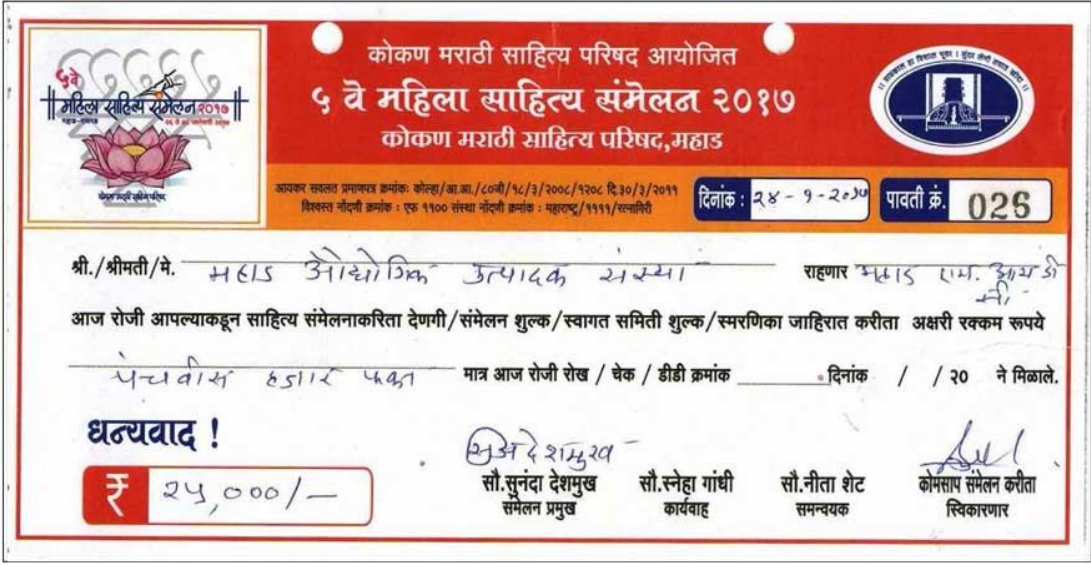 ५ वे
महिला साहित्य संमेलन २०१७
महाड-रायगड
कोकण मराठी साहित्य परिषद
कोकण मराठी साहित्य परिषद आयोजित
५ वे महिला साहित्य संमेलन २०१७
कोकण मराठी साहित्य परिषद,महाड
आयकर सवलत प्रमाणपत्र क्रमांकः कोल्हा/आ.आ./८०जी/१८/३/२००८/१२०८ दि.३०/३/२०११
विश्वस्त नोंदणी क्रमांक : एफ ११०० संस्था नोंदणी क्रमांक : महाराष्ट्र/११११/रत्नागिरी
दिनांक : २४-१-२०१७ पावती क्रं. 026
श्री./श्रीमती/मे. महाड औद्योगिक उत्पादक संस्था राहणार महाड एम. आय डी सी
आज रोजी आपल्याकडून साहित्य संमेलनाकरिता देणगी/संमेलन शुल्क/स्वागत समिती शुल्क/स्मरणिका जाहिरात करीता अक्षरी रक्कम रूपये
पंचवीस हजार फक्त मात्र आज रोजी रोख / चेक / डीडी क्रमांक दिनांक / / २० ने मिळाले.
धन्यवाद !
₹ २५,०००/-
देशमुख
सौ.सुनंदा देशमुख सौ.स्नेहा गांधी सौ.नीता शेट कोमसाप संमेलन करीता
संमेलन प्रमुख कार्यवाह समन्वयक स्विकारणार